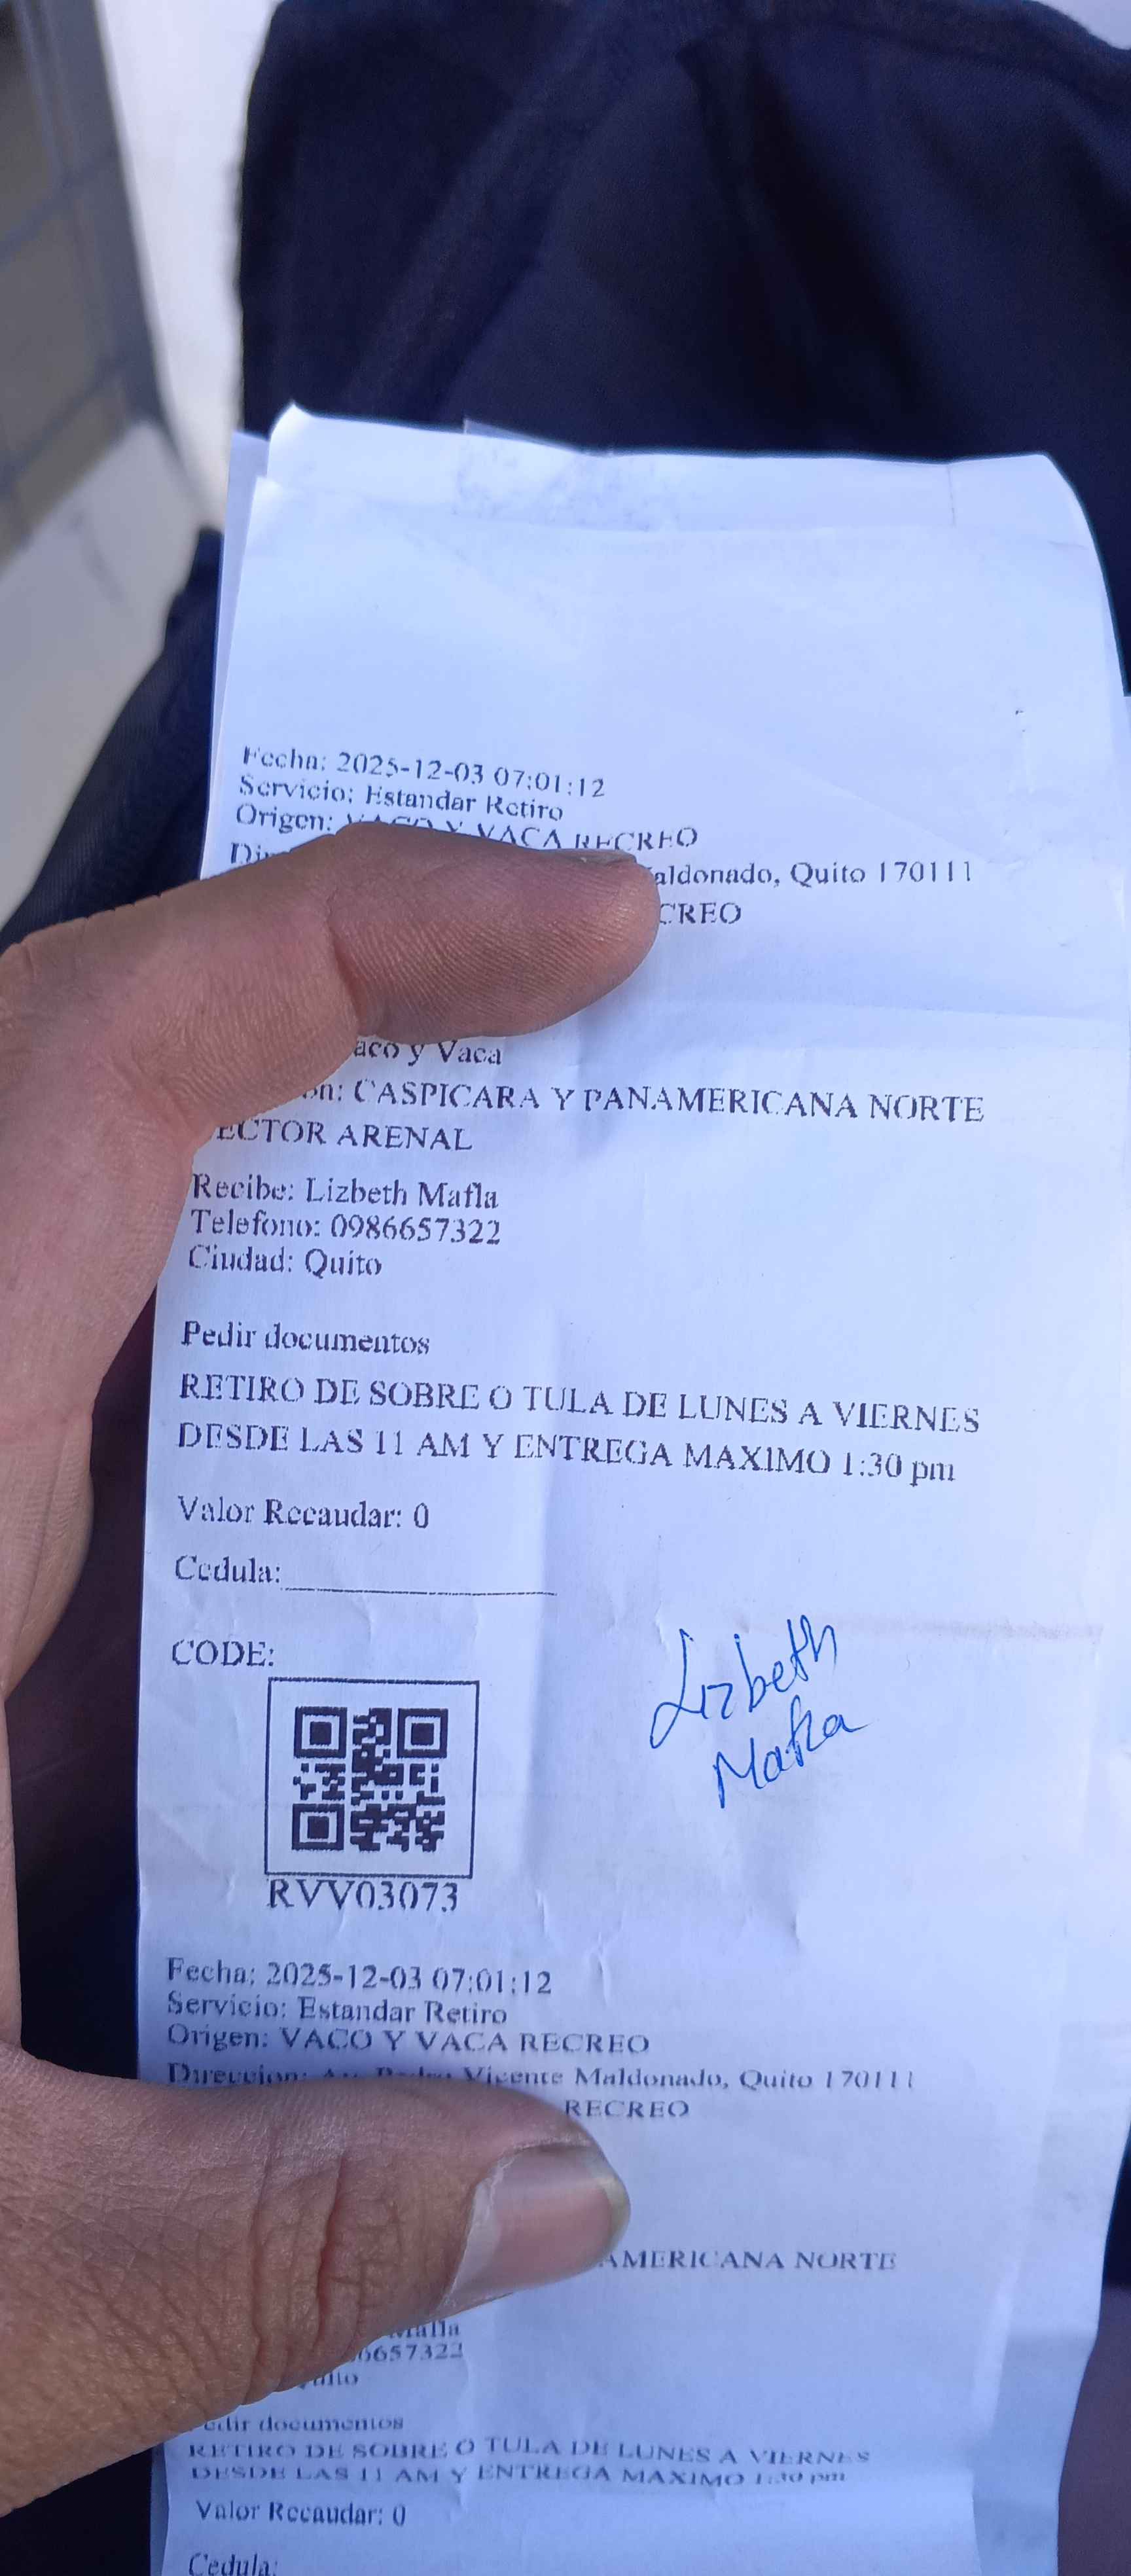 Fecha: 2025-12-03 07:01:12
Servicio: Estandar Retiro
Origen: VACO Y VACA RECREO
aldonado, Quito 170111
CREO
aco y Vaca
on: CASPICARA Y PANAMERICANA NORTE
ECTOR ARENAL
Recibe: Lizbeth Mafla
Telefono: 0986657322
Ciudad: Quito
Pedir documentos
RETIRO DE SOBRE O TULA DE LUNES A VIERNES
DESDE LAS 11 AM Y ENTREGA MAXIMO 1:30 pm
Valor Recaudar: 0
Cedula:
CODE:
Lizbeth
Mafla
RVV03073
Fecha: 2025-12-03 07:01:12
Servicio: Estandar Retiro
Origen: VACO Y VACA RECREO
Direccion: Av. Pedro Vicente Maldonado, Quito 170111
RECREO
AMERICANA NORTE
Mafla
6657322
Quito
Pedir documentos
RETIRO DE SOBRE O TULA DE LUNES A VIERNES
DESDE LAS 11 AM Y ENTREGA MAXIMO 1:30 pm
Valor Recaudar: 0
Cedula: